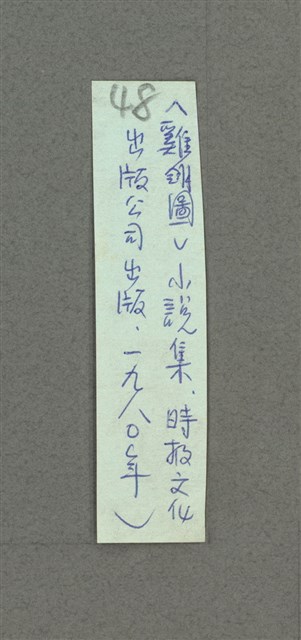 48
︿雞翎圖﹀小說集、時報文化
出版公司出版、一九八〇年）